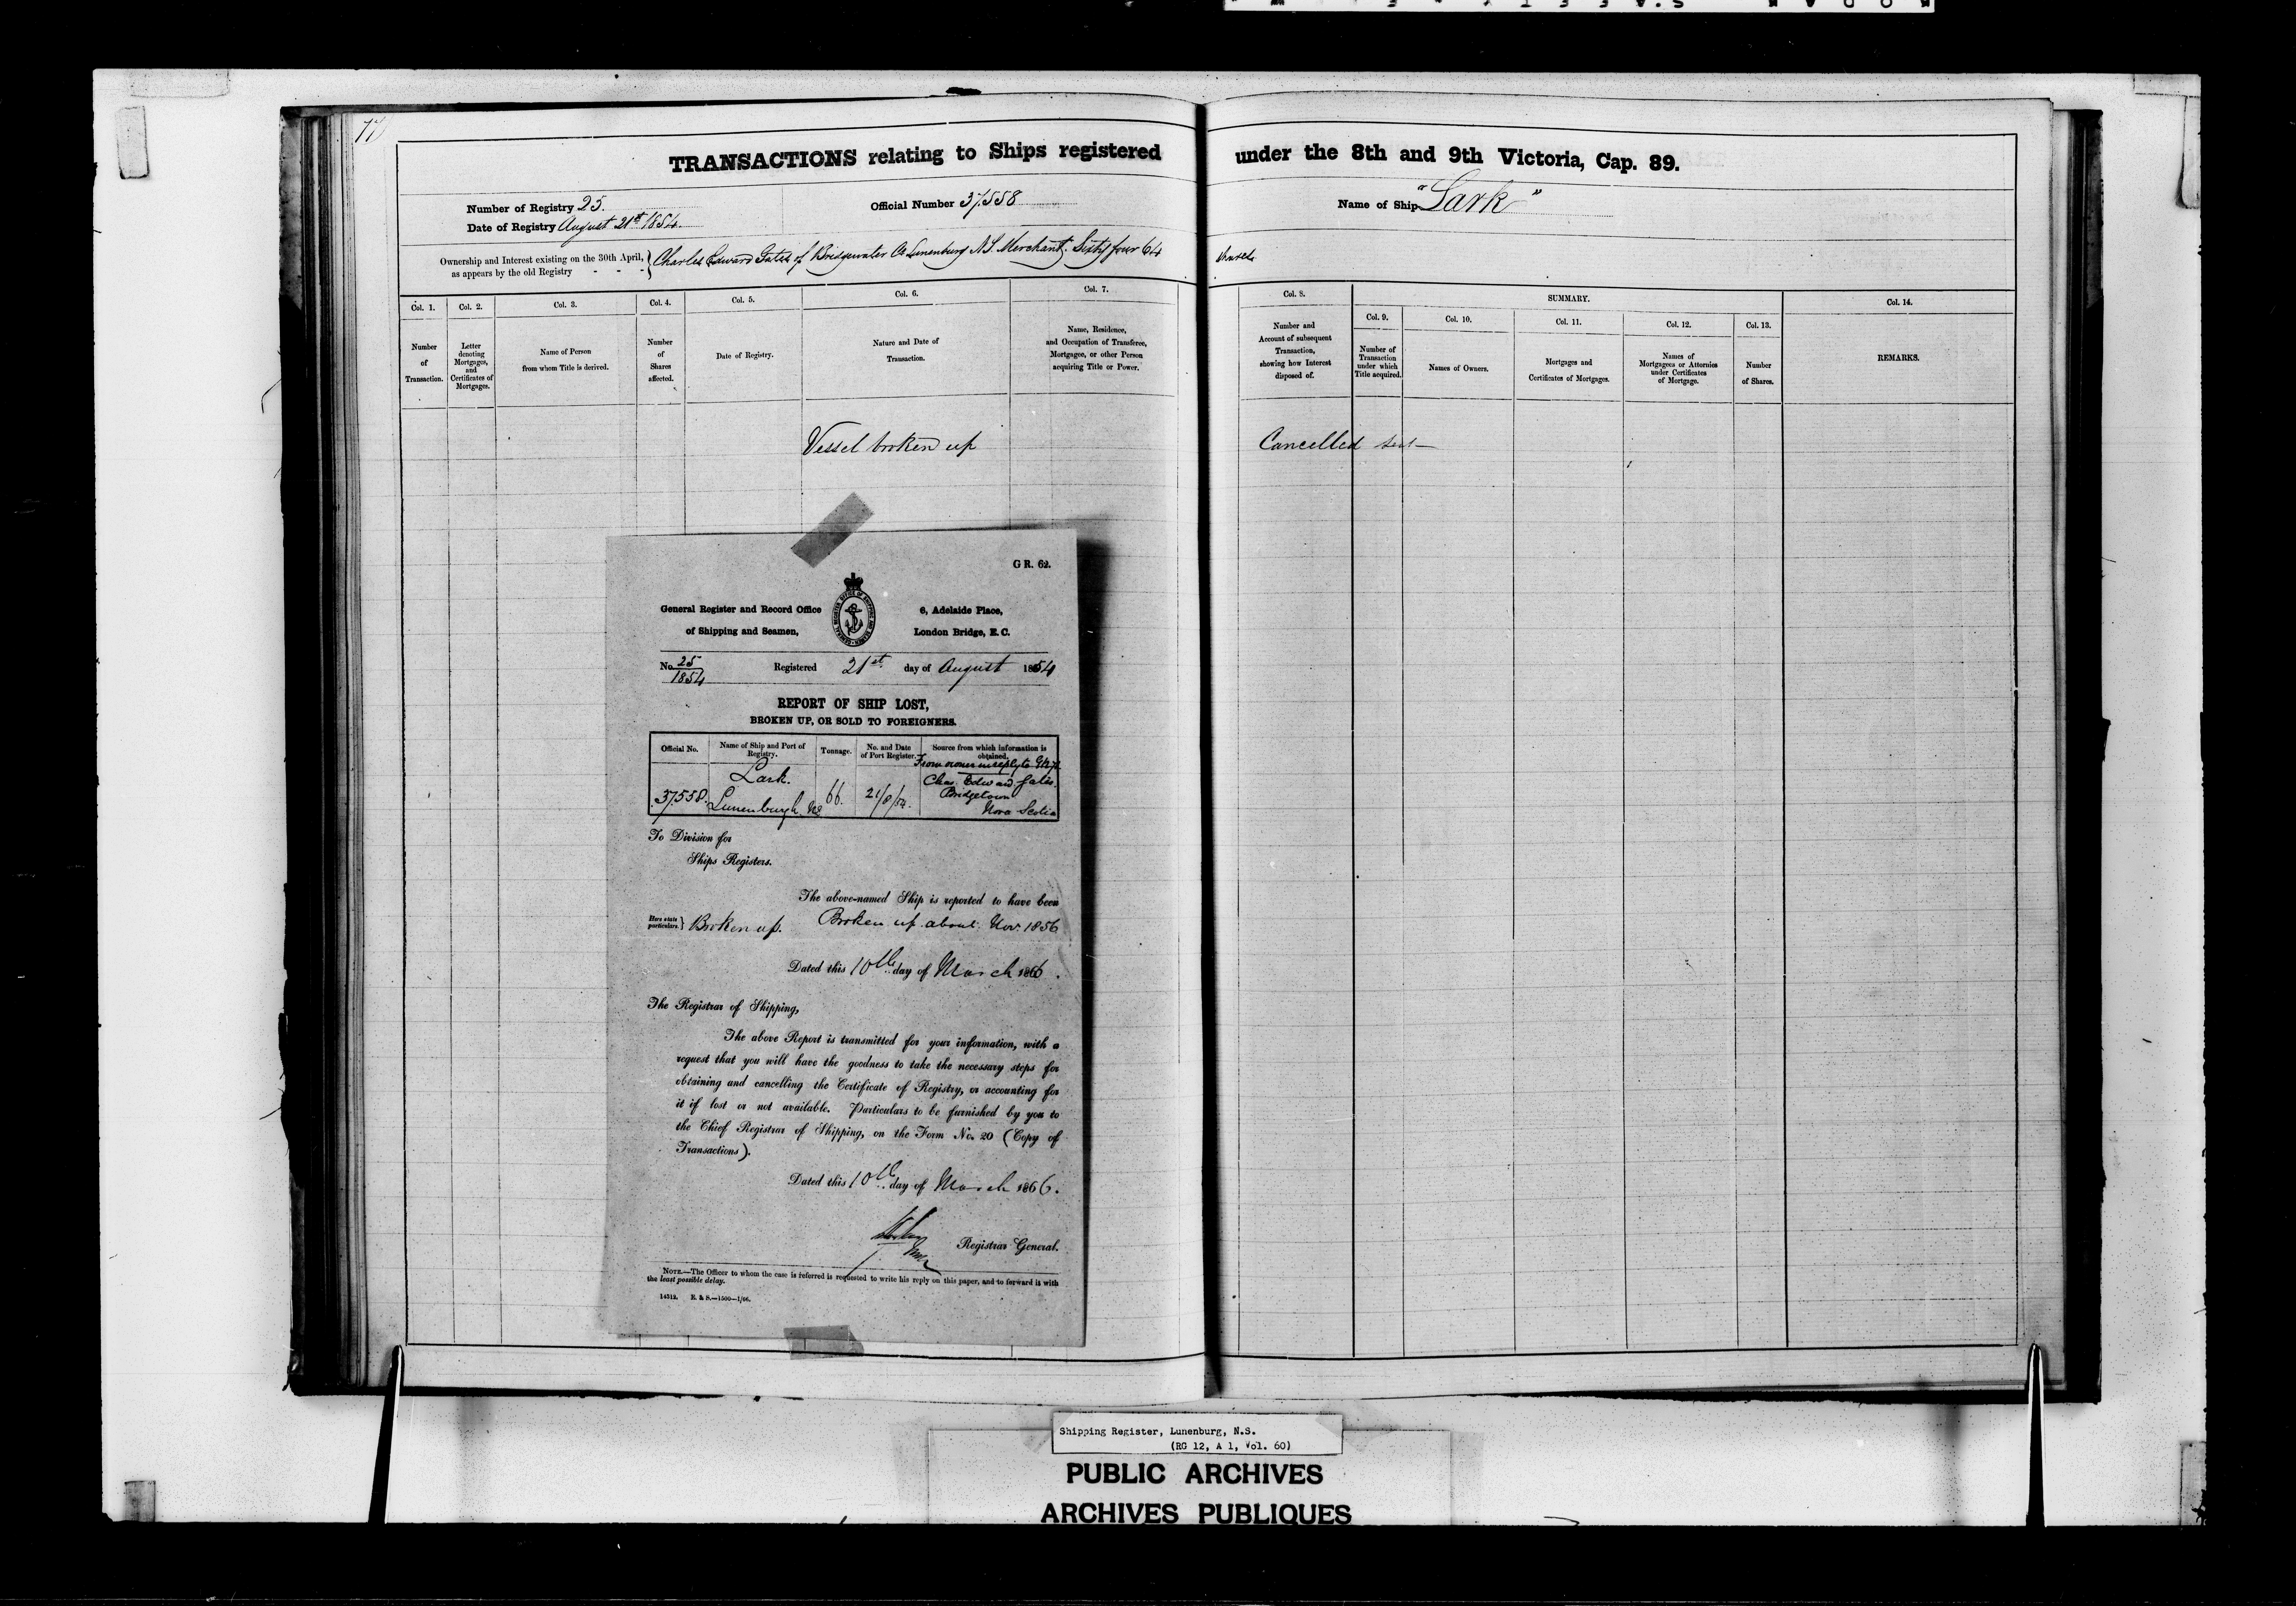 TRANSACTIONS relating to Ships registered under the 8th and 9th Victoria, Cap. 89.
Number of Registry 25.
Official Number 37558
Name of Ship "Lark"
Date of Registry August 21st 1854.
Ownership and Interest existing on the 30th April, as appears by the old Registry - - - } Charles Edward Gates of Bridgewater Co Lunenburg N.S. Merchant. Sixty four 64 shares
Col. 1. Number of Transaction.
Col. 2. Letter denoting Mortgages, and Certificates of Mortgages.
Col. 3. Name of Person from whom Title is derived.
Col. 4. Number of Shares affected.
Col. 5. Date of Registry.
Col. 6. Nature and Date of Transaction.
Col. 7. Name, Residence, and Occupation of Transferee, Mortgagee, or other Person acquiring Title or Power.
Col. 8. Number and Account of subsequent Transaction, showing how Interest disposed of.
SUMMARY.
Col. 9. Number of Transaction under which Title acquired.
Col. 10. Names of Owners.
Col. 11. Mortgages and Certificates of Mortgages.
Col. 12. Names of Mortgagees or Attornies under Certificates of Mortgage.
Col. 13. Number of Shares.
Col. 14. REMARKS.
Vessel broken up
Cancelled
G R. 62.
General Register and Record Office
of Shipping and Seamen,
6, Adelaide Place,
London Bridge, E.C.
No. 25/1854 Registered 21st day of August 1854
REPORT OF SHIP LOST,
BROKEN UP, OR SOLD TO FOREIGNERS.
Official No.
Name of Ship and Port of Registry.
Tonnage.
No. and Date of Port Register.
Source from which information is obtained.
37558.
Lark.
Lunenburgh NS
66.
21/8/54.
From owner in reply to
Chas. Edward Gates.
Bridgetown
Nova Scotia
To Division for
Ships Registers.
The above-named Ship is reported to have been
Here state particulars. } Broken up. Broken up about Nov. 1856
Dated this 10th day of March 1866.
The Registrar of Shipping,
The above Report is transmitted for your information, with a
request that you will have the goodness to take the necessary steps for
obtaining and cancelling the Certificate of Registry, or accounting for
it if lost or not available. Particulars to be furnished by you to
the Chief Registrar of Shipping, on the Form No. 20 (Copy of
Transactions).
Dated this 10th day of March 1866.
Registrar General.
NOTE.—The Officer to whom the case is referred is requested to write his reply on this paper, and to forward it with
the least possible delay.
14313. E. & S.—1500—1/66.
Shipping Register, Lunenburg, N.S.
(RG 12, A 1, Vol. 60)
PUBLIC ARCHIVES
ARCHIVES PUBLIQUES